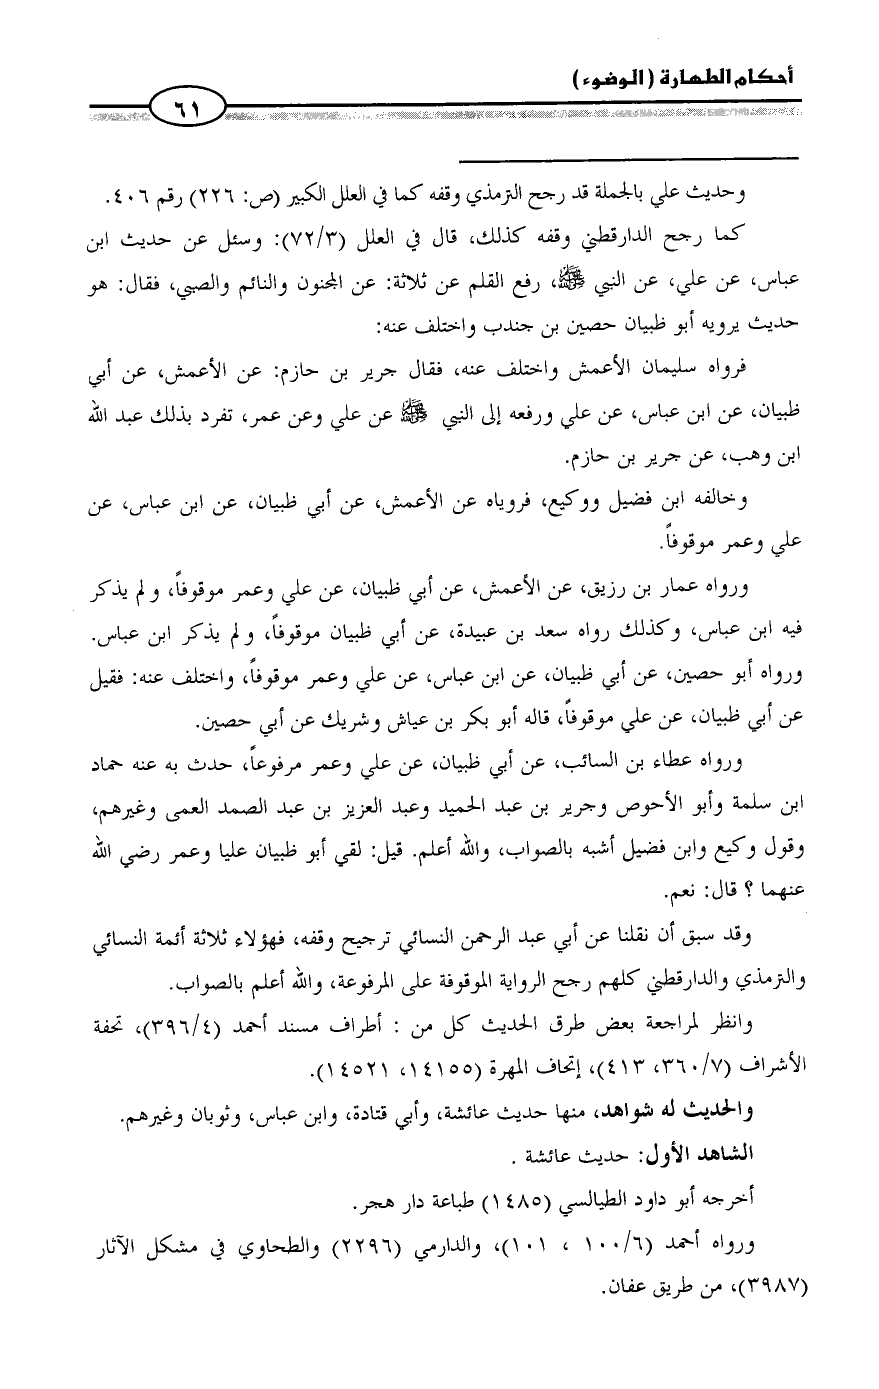 أحكام الطهارة (الوضوء)
٦١
وحديث علي بالجملة قد رجح الترمذي وقفه كما في العلل الكبير (ص: ٢٢٦) رقم ٤٠٦.
كما رجح الدارقطني وقفه كذلك، قال في العلل (٧٢/٣): وسئل عن حديث ابن
عباس، عن علي، عن النبي ﷺ، رفع القلم عن ثلاثة: عن المجنون والنائم والصبي، فقال: هو
حديث يرويه أبو ظبيان حصين بن جندب واختلف عنه:
فرواه سليمان الأعمش واختلف عنه، فقال جرير بن حازم: عن الأعمش، عن أبي
ظبيان، عن ابن عباس، عن علي ورفعه إلى النبي ﷺ عن علي وعن عمر، تفرد بذلك عبد الله
ابن وهب، عن جرير بن حازم.
وخالفه ابن فضيل ووكيع، فروياه عن الأعمش، عن أبي ظبيان، عن ابن عباس، عن
علي وعمر موقوفاً.
ورواه عمار بن رزيق، عن الأعمش، عن أبي ظبيان، عن علي وعمر موقوفاً، ولم يذكر
فيه ابن عباس، وكذلك رواه سعد بن عبيدة، عن أبي ظبيان موقوفاً، ولم يذكر ابن عباس.
ورواه أبو حصين، عن أبي ظبيان، عن ابن عباس، عن علي وعمر موقوفاً، واختلف عنه: فقيل
عن أبي ظبيان، عن علي موقوفاً، قاله أبو بكر بن عياش وشريك عن أبي حصين.
ورواه عطاء بن السائب، عن أبي ظبيان، عن علي وعمر مرفوعاً، حدث به عنه حماد
ابن سلمة وأبو الأحوص وجرير بن عبد الحميد وعبد العزيز بن عبد الصمد العمى وغيرهم،
وقول وكيع وابن فضيل أشبه بالصواب، والله أعلم. قيل: لقي أبو ظبيان عليا وعمر رضي الله
عنهما ؟ قال: نعم.
وقد سبق أن نقلنا عن أبي عبد الرحمن النسائي ترجيح وقفه، فهؤلاء ثلاثة أئمة النسائي
والترمذي والدارقطني كلهم رجح الرواية الموقوفة على المرفوعة، والله أعلم بالصواب.
وانظر لمراجعة بعض طرق الحديث كل من : أطراف مسند أحمد (٣٩٦/٤)، تحفة
الأشراف (٣٦٠/٧، ٤١٣)، إتحاف المهرة (١٤١٥٥، ١٤٥٢١).
والحديث له شواهد، منها حديث عائشة، وأبي قتادة، وابن عباس، وثوبان وغيرهم.
الشاهد الأول: حديث عائشة .
أخرجه أبو داود الطيالسي (١٤٨٥) طباعة دار هجر.
ورواه أحمد (١٠٠/٦ ، ١٠١)، والدارمي (٢٢٩٦) والطحاوي في مشكل الآثار
(٣٩٨٧)، من طريق عفان.